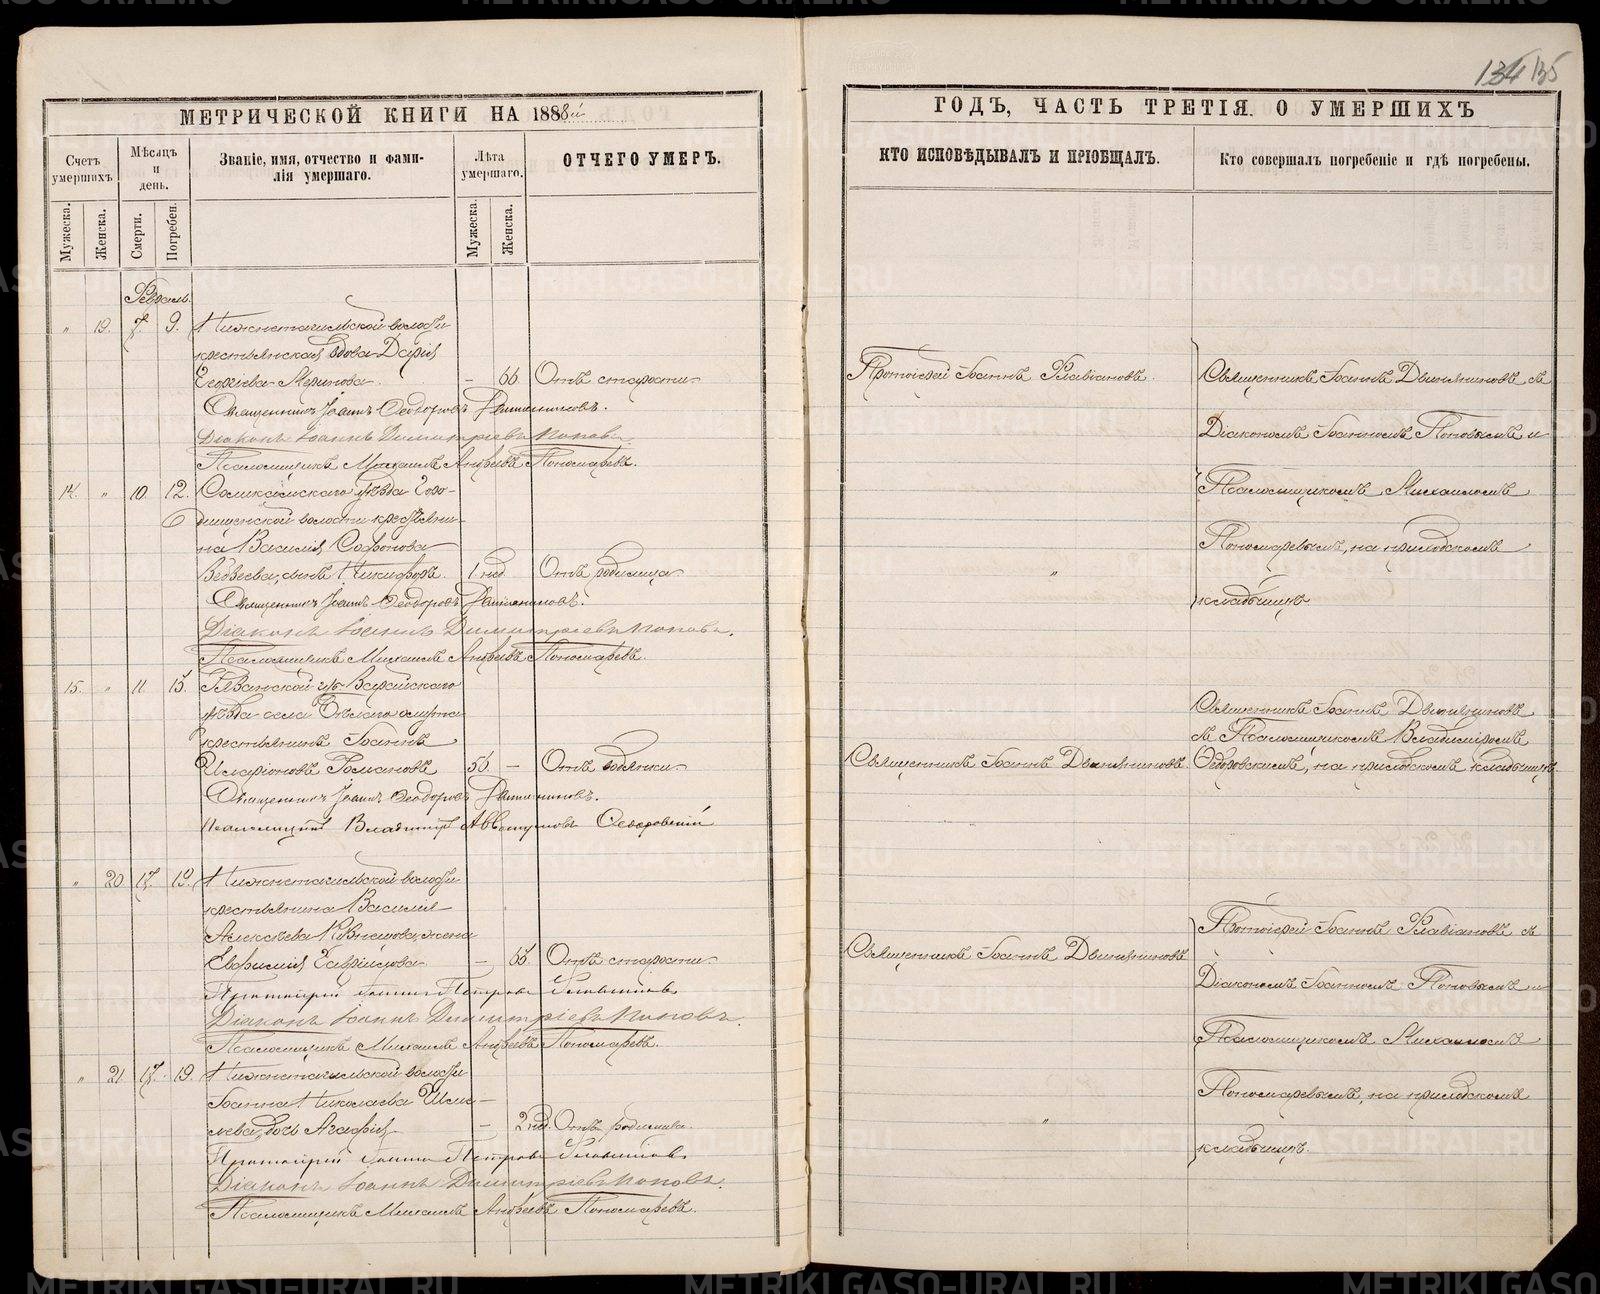 134 135
МЕТРИЧЕСКОЙ КНИГИ НА 1888й
ГОДЪ, ЧАСТЬ ТРЕТІЯ. О УМЕРШИХЪ
Счетъ умершихъ
Мѣсяцъ и день.
Званіе, имя, отчество и фами-
лія умершаго.
Лѣта умершаго.
ОТЧЕГО УМЕРЪ.
КТО ИСПОВѢДЫВАЛЪ И ПРІОБЩАЛЪ.
Кто совершалъ погребеніе и гдѣ погребены.
Мужеска.
Женска.
Смерти.
Погребен.
Мужеска
Женска.
Февраль.
" 19. 7. 9. Нижнетагильской волости
крестьянская вдова Дарія
Георгіева Меринова. – 66. Отъ старости
Протоіерей Іоаннъ Флавіановъ.
Священникъ Іоаннъ Ѳеодоровъ Двиняниновъ.
Діаконъ Іоаннъ Димитріевъ Поповъ.
Псаломщикъ Михаилъ Андреевъ Пономаревъ.
Священникъ Іоаннъ Двиняниновъ съ
Діакономъ Іоанномъ Поповымъ и
Псаломщикомъ Михаиломъ
Пономаревымъ, на приходскомъ
кладбищѣ
14. " 10. 12. Соликамскаго уѣзда Горо-
дищенской волости крестьяни-
на Василія Софронова
сынъ Никифоръ. 1 нед. Отъ родимца
"
Священникъ Іоаннъ Ѳеодоровъ Двиняниновъ.
Діаконъ Іоаннъ Димитріевъ Поповъ.
Псаломщикъ Михаилъ Андреевъ Пономаревъ.
15. " 11. 13.
уѣзда села
крестьянинъ Іоаннъ
Иларіоновъ Романовъ 56. – Отъ водянки
Священникъ Іоаннъ Двиняниновъ.
Священникъ Іоаннъ Ѳеодоровъ Двиняниновъ.
Псаломщикъ Владиміръ Аввакумовъ
Священникъ Іоаннъ Двиняниновъ
съ Псаломщикомъ Владиміромъ
на приходскомъ кладбищѣ.
" 20. 17. 19. Нижнетагильской волости
крестьянина Василія
Алексѣева жена
Евфимія Гавріилова – 66. Отъ старости
Священникъ Іоаннъ Двиняниновъ
Протоіерей Іоаннъ Петровъ Флавіановъ
Діаконъ Іоаннъ Димитріевъ Поповъ.
Псаломщикъ Михаилъ Андреевъ Пономаревъ.
Протоіерей Іоаннъ Флавіановъ съ
Діакономъ Іоанномъ Поповымъ и
Псаломщикомъ Михаиломъ
Пономаревымъ, на приходскомъ
кладбищѣ.
" 21. 17. 19. Нижнетагильской волости
Іоанна Николаева
дочь Агафія – 2 нед. Отъ родимца.
"
Протоіерей Іоаннъ Петровъ Флавіановъ
Діаконъ Іоаннъ Димитріевъ Поповъ.
Псаломщикъ Михаилъ Андреевъ Пономаревъ.
METRIKI.GASO-URAL.RU